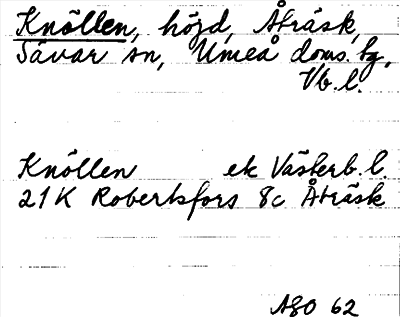 Knöllen, höjd, Åträsk,
Sävar sn, Umeå doms. tg,
Vb. l.
Knöllen ek Västerb. l.
21 K Robertsfors 8c Åträsk
ASO 62